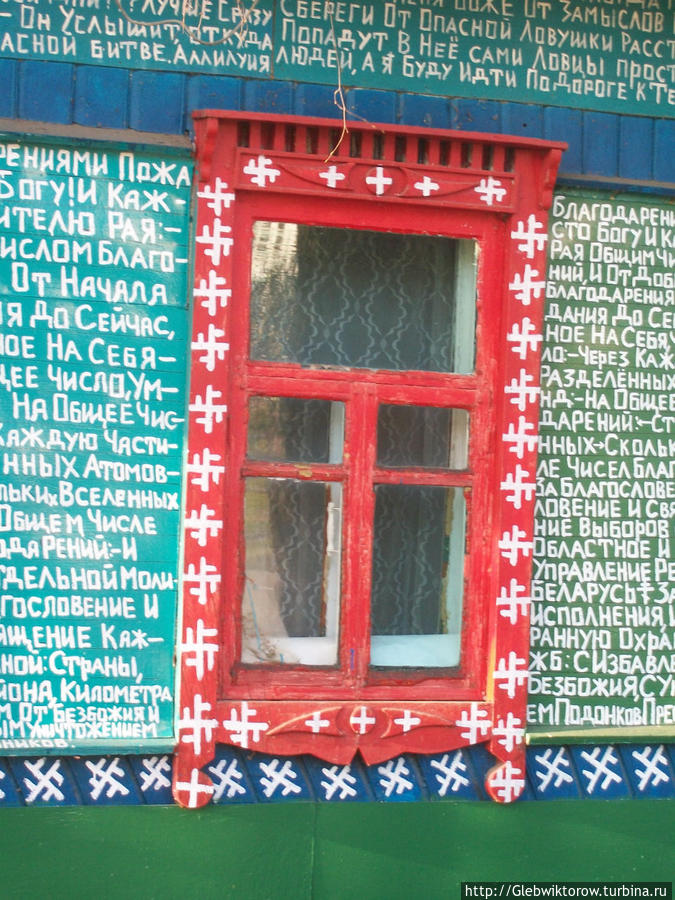 От Опасной Ловушки
Он Услышит откуда Попадут В Неё сами Ловцы
асной Битве. Аллилуия Людей, а я Буду идти По Дороге к
рениями Пожа
Богу! И Каж-
ителю Рая:-
ислом Благо-
От Начала
ия До Сейчас,
ное На Себя-
щее Число, Ум-
На Общее Чис-
Каждую Части-
нных Атомов-
льких Вселенных
Общем Числе
одарений:-и
тдельной Моли-
гословение и
ящение Каж-
ной: Страны,
йона, Километра
ем От Безбожия и
ым уничтожением
нников.
Благодарени
сто Богу и Ка
Рая Общим Чи
ний, И От Доб
Благодарения
дания До Се
ное На Себя, Ч
ло:-Через Каж
разделённых
нд:-на Общее
дарений:-Ст
нных→Сколь
ле Чисел Благ
За Благослове
ловение и Свя
ние Выборов
Областное и
Управление Ре
Беларусь За
исполнения, И
ранную Охра
жб: С Избавле
Безбожия Су
ем Подонков Пре
http://Glebwiktorow.turbina.ru